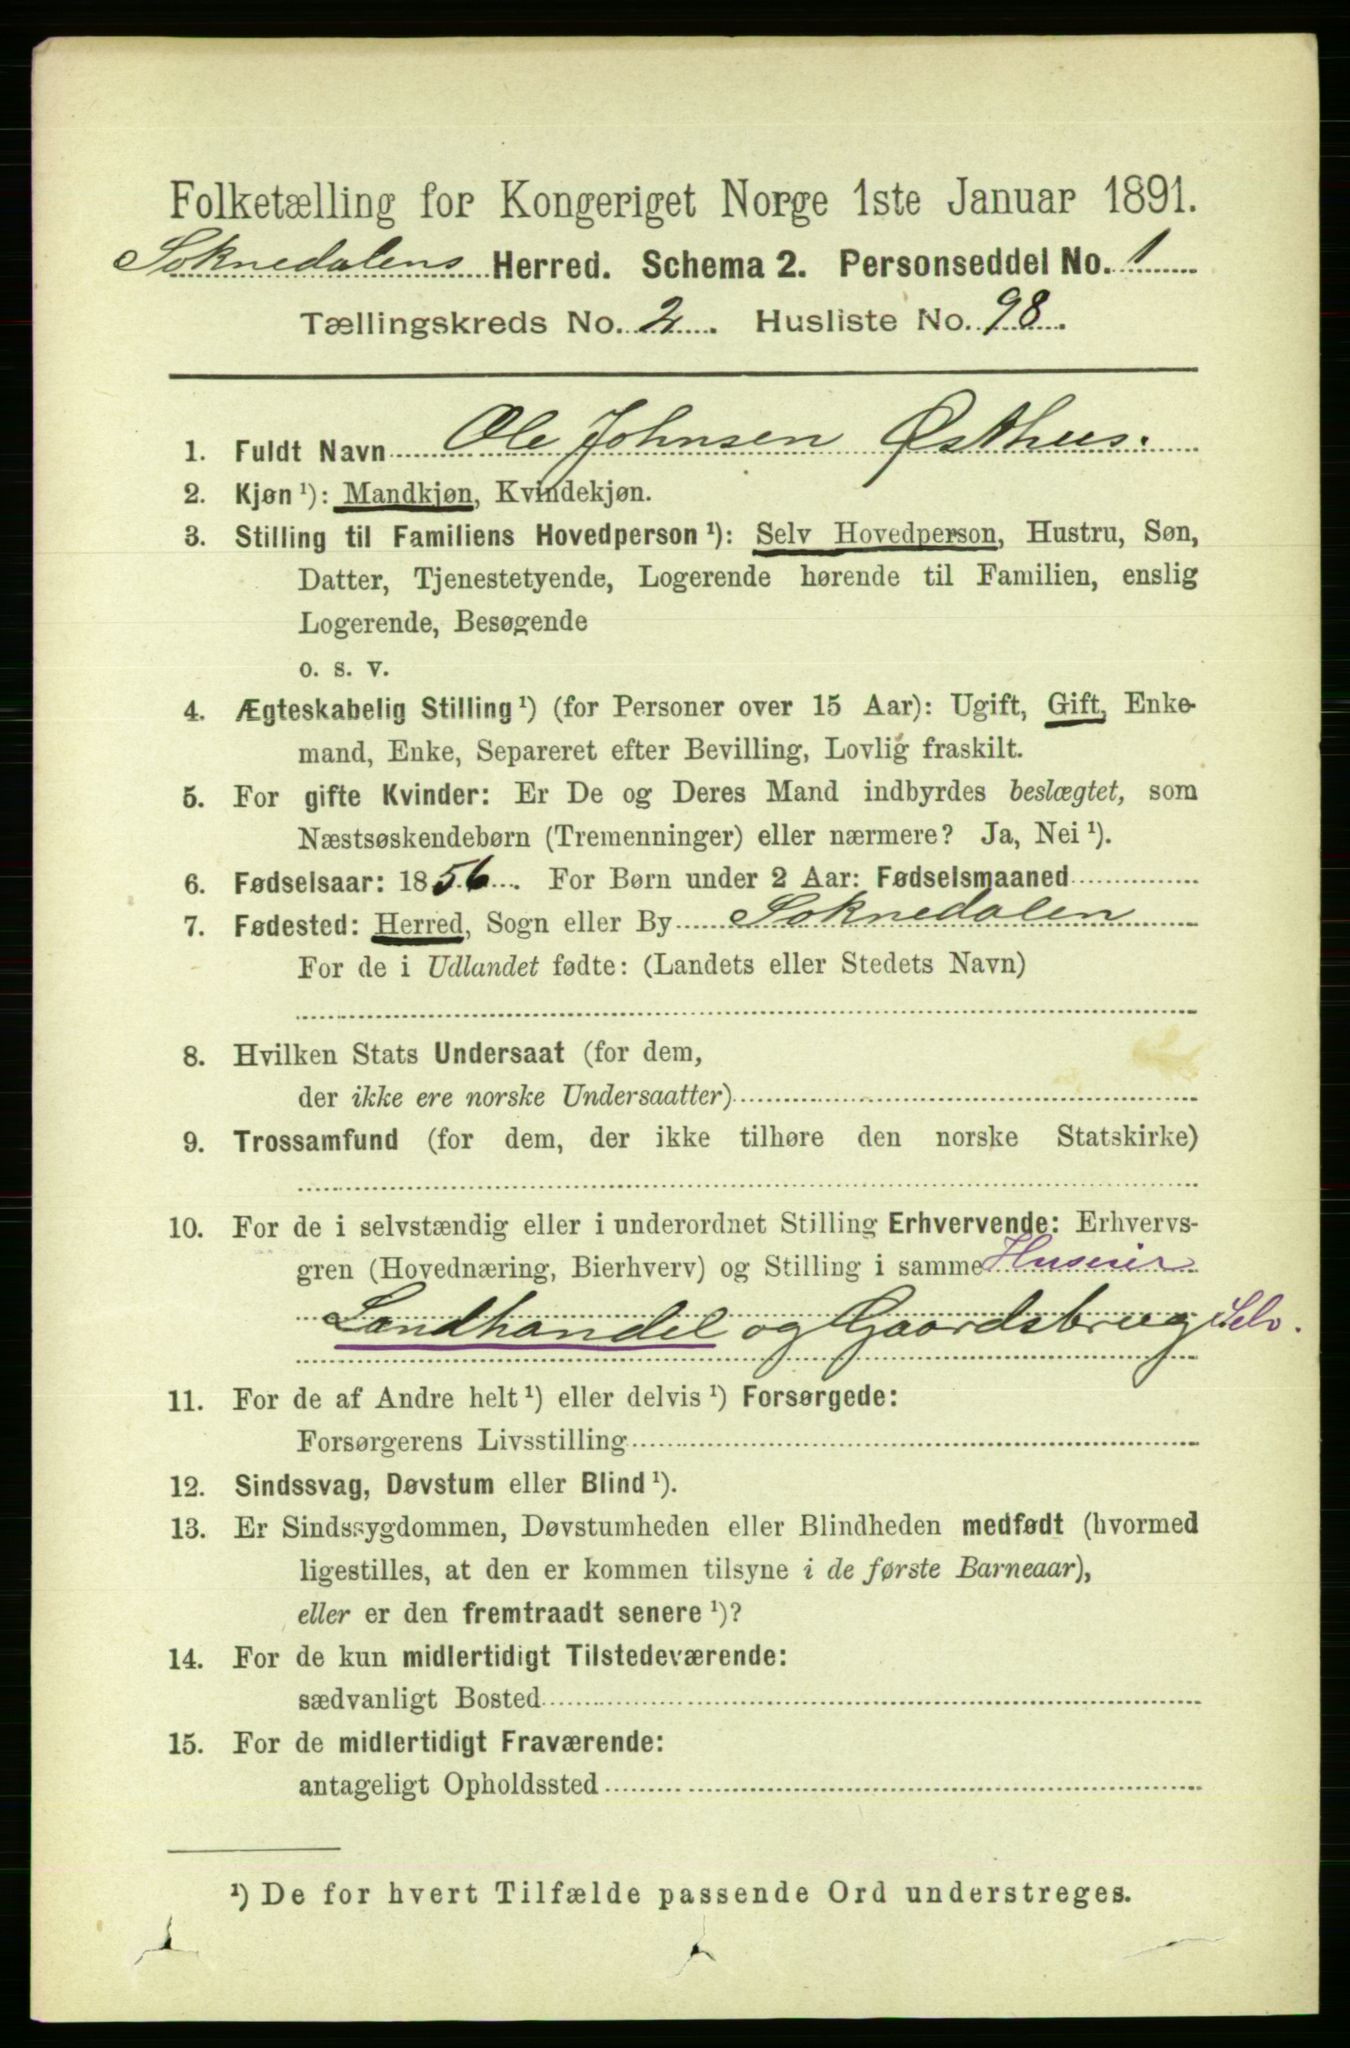 Folketælling for Kongeriget Norge 1ste Januar 1891.
Soknedalens Herred. Schema 2. Personseddel No. 1
Tællingskreds No. 2. Husliste No. 98.
1. Fuldt Navn Ole Johnsen Østhus.
2. Kjøn ¹): Mandkjøn, Kvindekjøn.
3. Stilling til Familiens Hovedperson ¹): Selv Hovedperson, Hustru, Søn,
Datter, Tjenestetyende, Logerende hørende til Familien, enslig
Logerende, Besøgende
o. s. v.
4. Ægteskabelig Stilling ¹) (for Personer over 15 Aar): Ugift, Gift, Enke-
mand, Enke, Separeret efter Bevilling, Lovlig fraskilt.
5. For gifte Kvinder: Er De og Deres Mand indbyrdes beslægtet, som
Næstsøskendebørn (Tremenninger) eller nærmere? Ja, Nei ¹).
6. Fødselsaar: 1856. For Børn under 2 Aar: Fødselsmaaned
7. Fødested: Herred, Sogn eller By Soknedalen
For de i Udlandet fødte: (Landets eller Stedets Navn)
8. Hvilken Stats Undersaat (for dem,
der ikke ere norske Undersaatter)
9. Trossamfund (for dem, der ikke tilhøre den norske Statskirke)
10. For de i selvstændig eller i underordnet Stilling Erhvervende: Erhvervs-
gren (Hovednæring, Bierhverv) og Stilling i samme Huseier
Landhandel og Gaardsbrug Selv.
11. For de af Andre helt ¹) eller delvis ¹) Forsørgede:
Forsørgerens Livsstilling
12. Sindssvag, Døvstum eller Blind ¹).
13. Er Sindssygdommen, Døvstumheden eller Blindheden medfødt (hvormed
ligestilles, at den er kommen tilsyne i de første Barneaar),
eller er den fremtraadt senere ¹)?
14. For de kun midlertidigt Tilstedeværende:
sædvanligt Bosted
15. For de midlertidigt Fraværende:
antageligt Opholdssted
¹) De for hvert Tilfælde passende Ord understreges.